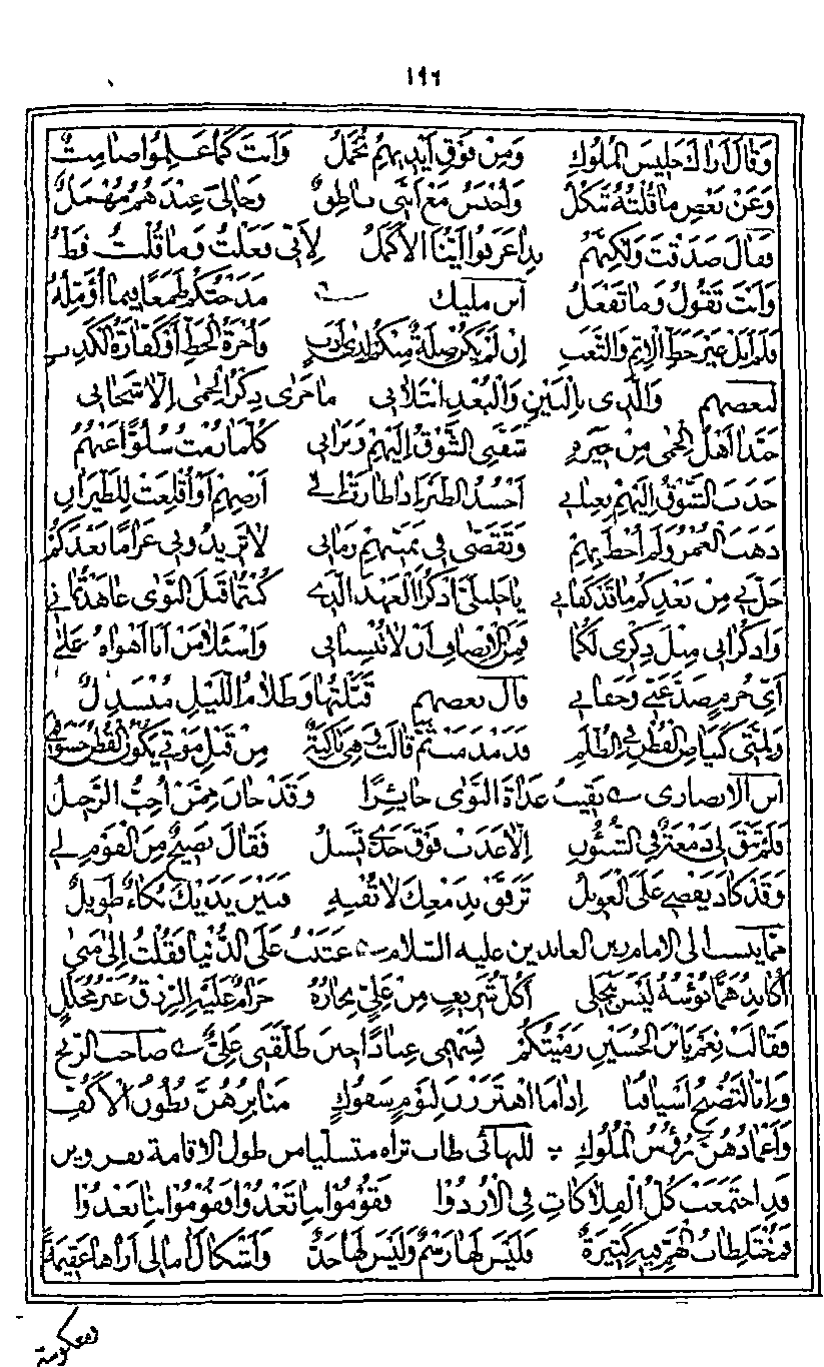 ١٩٦
وَقَالَ اَرَاكَ جَلِيسَ الْمُلُوكِ وَمِنْ فَوْقِ اَيْدِيهِمُ تُحْمَلُ وَاَنتَ كَمَا عَلِمُوا صَامِتٌ
وَعَنْ بَعْضِ مَا قُلْتَهُ تَنْكُلُ وَاُحْبَسُ مَعَ اَنَّنِي نَاطِقٌ وَحَالِيَ عِنْدَهُمُ مُهْمَلٌ
فَقَالَ صَدَقْتَ وَلٰكِنَّهُمْ بِذَا عَرَفُوا اَيُّنَا الْاَكْمَلُ لِاَنِّي فَعَلْتُ وَمَا قُلْتُ قَطُّ
وَاَنْتَ تَقُولُ وَمَا تَفْعَلُ ابن مليك مَدَحْتُكُمْ طَمَعًا فِيمَا اُؤَمِّلُهُ
فَلَمْ اَنَلْ غَيْرَ حَظِّ الْاِثْمِ وَالتَّعَبِ اِنْ لَمْ يَكُنْ صِلَةً مِنْكُمْ لِذِي اَدَبٍ فَاُجْرَةُ الْخَطِّ اَوْ كَفَّارَةُ الْكَذِبِ
لبعضهم وَالَّذِي بِالْبَيْنِ وَالْبُعْدِ ابْتَلَانِي مَا جَرٰى ذِكْرُ الْحِمٰى اِلَّا شَجَانِي
حَبَّذَا اَهْلُ الْحِمٰى مِنْ جِيرَةٍ شَفَّنِي الشَّوْقُ اِلَيْهِمْ وَبَرَانِي كُلَّمَا رُمْتُ سُلُوًّا عَنْهُمُ
جَذَبَ الشَّوْقُ اِلَيْهِمْ بِعِنَانِي اَحْسُدُ الطَّيْرَ اِذَا طَارَتْ اِلٰى اَرْضِهِمْ اَوْ اَقْلَعَتْ لِلطَّيَرَانِ
ذَهَبَ الْعُمْرُ وَلَمْ اَحْظَ بِهِمْ وَتَقَضّٰى فِي تَمَنِّيهِمْ زَمَانِي لَا تَزِيدُونِي غَرَامًا بَعْدَكُمْ
حَلَّ بِي مِنْ بَعْدِكُمْ مَا قَدْ كَفَانِي يَا خَلِيلَيَّ اذْكُرَا الْعَهْدَ الَّذِي كُنْتُمَا قَبْلَ النَّوٰى عَاهَدْتُمَانِي
وَاذْكُرَانِي مِثْلَ ذِكْرِي لَكُمَا فَمِنَ الْاِنْصَافِ اَنْ لَا تَنْسَيَانِي وَاسْئَلَا مَنْ اَنَا اَهْوَاهُ عَلٰى
اَيِّ جُرْمٍ صَدَّ عَنِّي وَجَفَانِي قال بعضهم قَبَّلْتُهَا وَظَلَامُ اللَّيْلِ مُنْسَدِلٌ
وَلِمَّتِي كَبَيَاضِ الْقُطْنِ فِي الظُّلَمِ فَدَمْدَمَتْ ثُمَّ قَالَتْ وَهِيَ بَاكِيَةٌ مِنْ قَبْلِ مَوْتِي يَكُونُ الْقُطْنُ حَشْوَ فَمِي
ابن الانصاري بَقِيتُ غَدَاةَ النَّوٰى حَائِرًا وَقَدْ حَانَ مِمَّنْ اُحِبُّ الرَّحِيلُ
فَلَمْ تَبْقَ لِي دَمْعَةٌ فِي الشُّؤُنِ اِلَّا غَدَتْ فَوْقَ خَدِّي تَسِيلُ فَقَالَ نَصِيحٌ مِنَ الْقَوْمِ لِي
وَقَدْ كَادَ يَقْضِي عَلَيَّ الْعَوِيلُ تَرَفَّقْ بِدَمْعِكَ لَا تُفْنِهِ فَبَيْنَ يَدَيْكَ بُكَاءٌ طَوِيلٌ
مما ينسب الى الامام زين العابدين عليه السلام عَتَبْتُ عَلَى الدُّنْيَا فَقُلْتُ اِلٰى مَتٰى
اُكَابِدُ هَمًّا بُؤْسُهُ لَيْسَ يَنْجَلِي اَكُلُّ شَرِيفٍ مِنْ عَلِيٍّ نِجَارُهُ حَرَامٌ عَلَيْهِ الرِّزْقُ غَيْرُ مُحَلَّلٍ
فَقَالَتْ نَعَمْ يَابْنَ الْحُسَيْنِ رَمَيْتُكُمْ بِسَهْمِي عِنَادًا حِينَ طَلَّقَنِي عَلِيٌّ صاحب الزنج
وَاِنَّا لَتُصْبِحُ اَسْيَافُنَا اِذَا مَا اهْتَزَزْنَ لِيَوْمٍ سَفُوكٍ مَنَابِرُهُنَّ بُطُونُ الْاَكُفِّ
وَاَغْمَادُهُنَّ رُؤُسُ الْمُلُوكِ للبهائي طاب ثراه متسليا من طول الاقامة بقزوين
قَدِ اجْتَمَعَتْ كُلُّ الْفَلَاكَاتِ فِي الْاُرْدُوا فَقُومُوا بِنَا نَعْدُوا فَقُومُوا بِنَا نَعْدُوا
فَمُخْتَلِطَاتُ الْهَمِّ فِيهِ كَثِيرَةٌ فَلَيْسَ لَهَا رَسْمٌ وَلَيْسَ لَهَا حَدٌّ وَاَشْكَالُ اٰمَالِي اَرَاهَا عَقِيمَةً
معكوسة